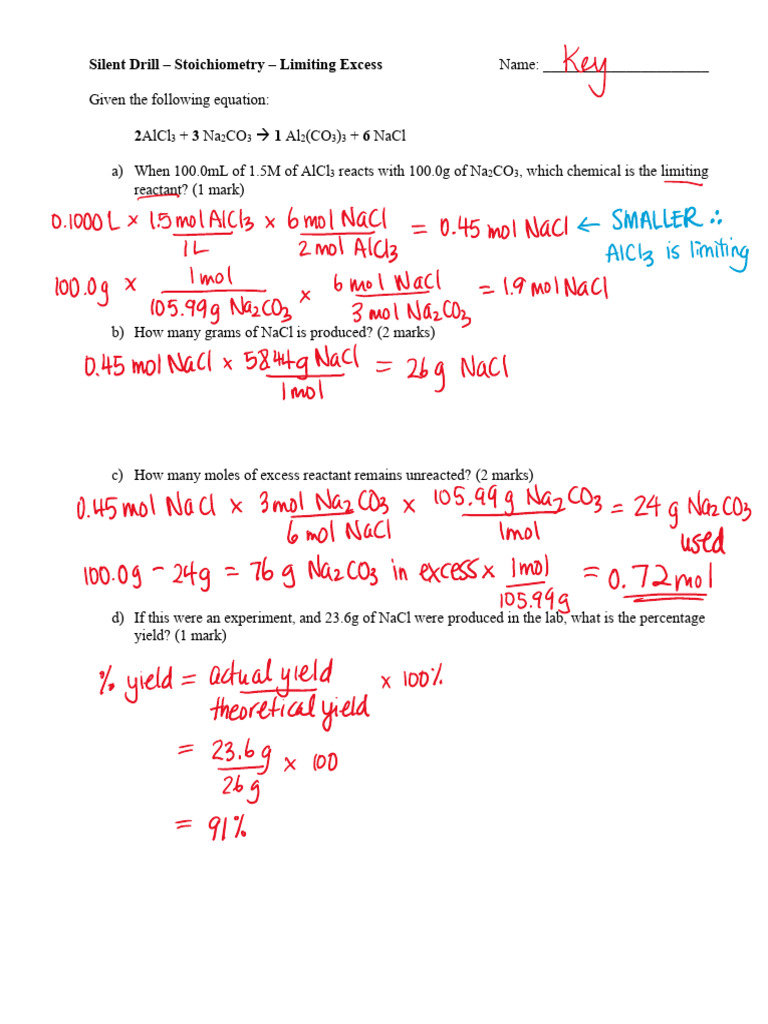 Silent Drill – Stoichiometry – Limiting Excess Name: Key
Given the following equation:
2AlCl₃ + 3 Na₂CO₃ → 1 Al₂(CO₃)₃ + 6 NaCl
a) When 100.0mL of 1.5M of AlCl₃ reacts with 100.0g of Na₂CO₃, which chemical is the limiting
reactant? (1 mark)
0.1000 L × 1.5 mol AlCl₃ / 1L × 6 mol NaCl / 2 mol AlCl₃ = 0.45 mol NaCl ← SMALLER ∴
AlCl₃ is limiting
100.0g × 1 mol / 105.99g Na₂CO₃ × 6 mol NaCl / 3 mol Na₂CO₃ = 1.9 mol NaCl
b) How many grams of NaCl is produced? (2 marks)
0.45 mol NaCl × 58.44g NaCl / 1 mol = 26g NaCl
c) How many moles of excess reactant remains unreacted? (2 marks)
0.45 mol NaCl × 3 mol Na₂CO₃ / 6 mol NaCl × 105.99 g Na₂CO₃ / 1 mol = 24 g Na₂CO₃
used
100.0g - 24g = 76 g Na₂CO₃ in excess × 1 mol / 105.99g = 0.72 mol
d) If this were an experiment, and 23.6g of NaCl were produced in the lab, what is the percentage
yield? (1 mark)
% yield = actual yield / theoretical yield × 100%
= 23.6g / 26g × 100
= 91%